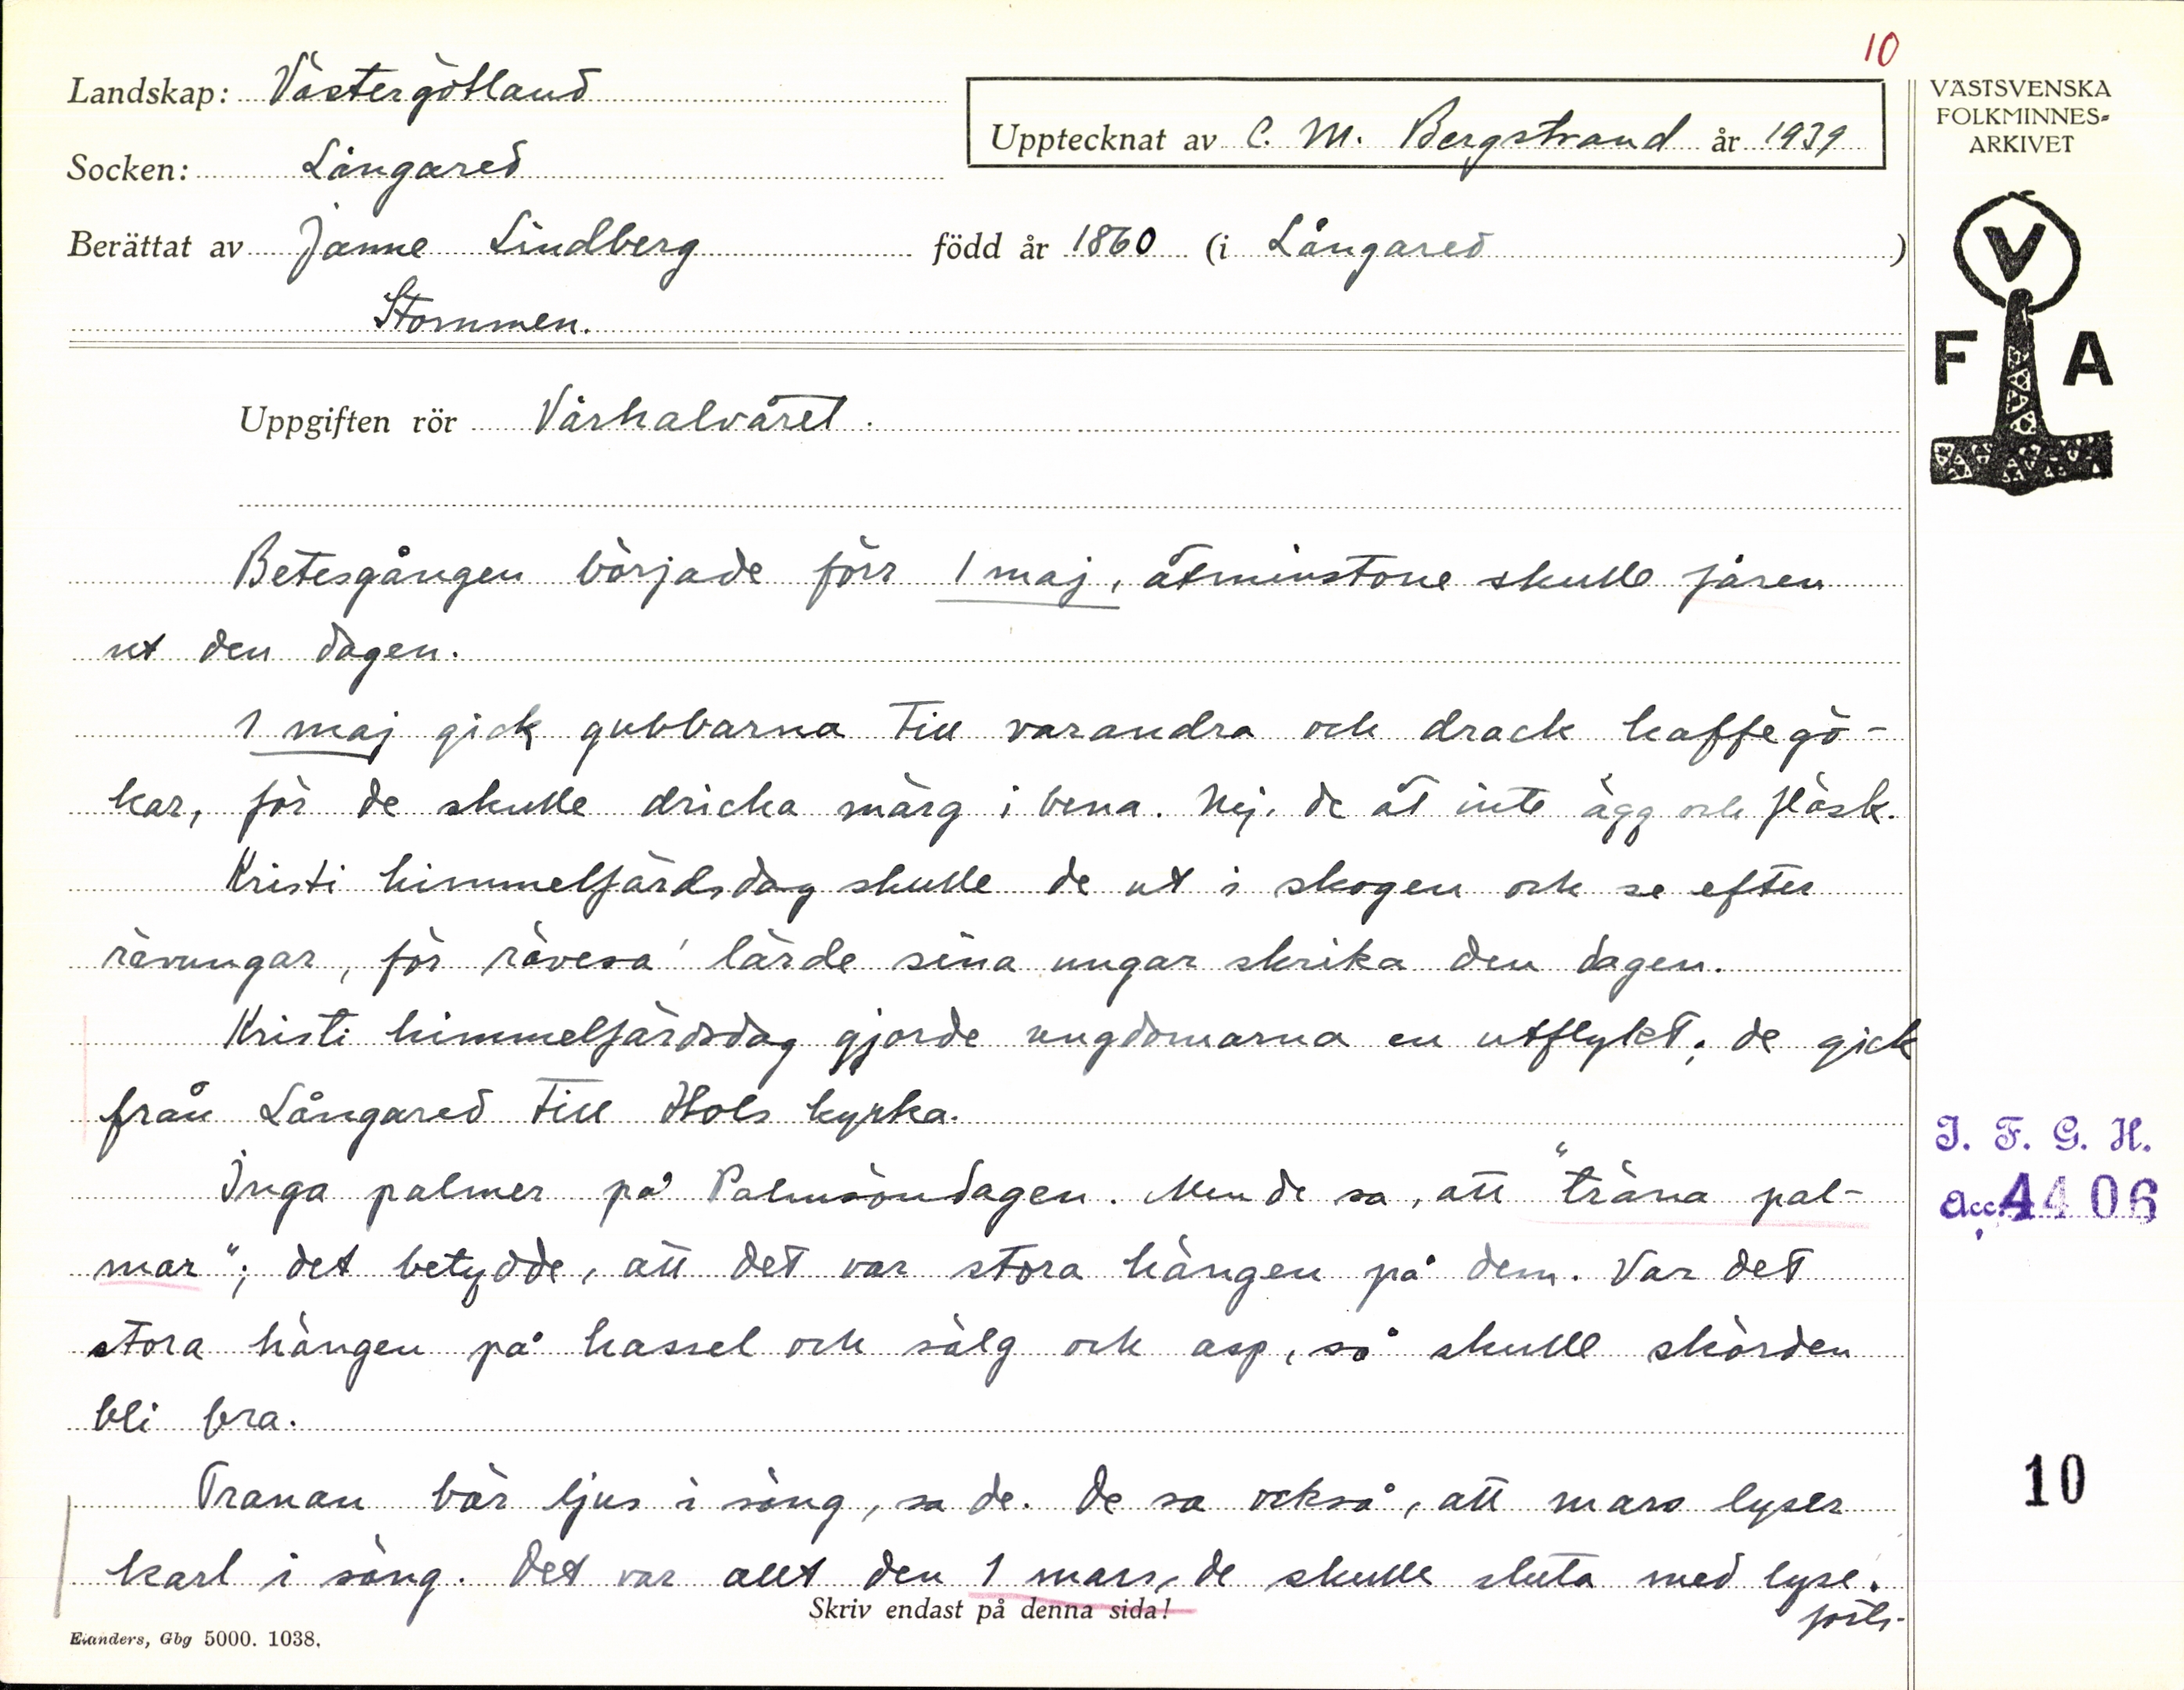 10
Landskap: Västergötland
Upptecknat av C. M. Bergstrand år 1939
VÄSTSVENSKA
FOLKMINNES-
ARKIVET
Socken: Långared
Berättat av Janne Lindberg född år 1860 (i Långared)
Stommen.
V
F A
Uppgiften rör Vårhalvåret.
Betesgången började förr 1 maj, åtminstone skulle fåren
ut den dagen.
1 maj gick gubbarna till varandra och drack kaffegö-
kar, för de skulle dricka märg i bena. Nej, de åt inte ägg och fläsk.
Kristi himmelfärdsdag skulle de ut i skogen och se efter
rävungar, för rävesa lärde sina ungar skrika den dagen.
Kristi himmelfärdsdag gjorde ungdomarna en utflykt; de gick
från Långared till Hols kyrka.
Inga palmer på Palmsöndagen. Men de sa, att "träna pal-
mar"; det betydde, att det var stora hängen på dem. Var det
stora hängen på hassel och sälg och asp, så skulle skörden
bli bra.
Tranan bär ljus i säng, sa de. De sa också, att mars lyser
karl i säng. Det var allt den 1 mars, de skulle sluta med lyse.
forts.
Skriv endast på denna sida!
Elanders, Gbg 5000. 1038.
I. F. G. H.
Acc. 4406
10